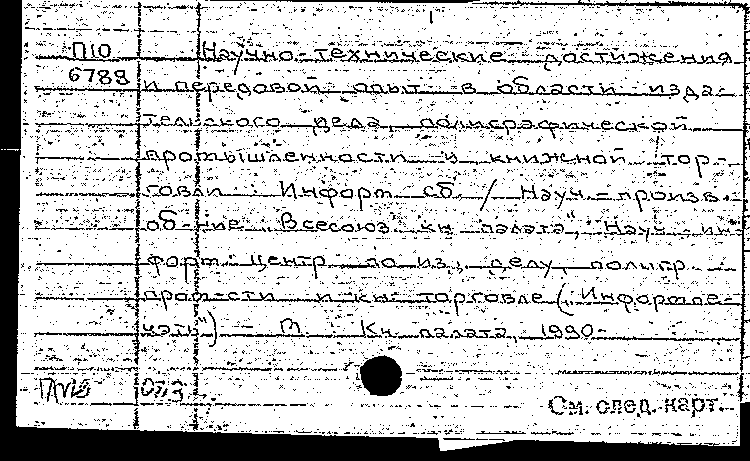 П10 Научно-технические достижения
6788 и передовой опыт в области изда-
тельского дела, полиграфической
промышленности и книжной тор-
говли : Информ. сб. / Науч.-произв.
об-ние "Всесоюз. кн. палата", Науч.-ин-
форм. центр по изд. делу, полигр.
пром-сти и кн. торговле ("Информпе-
чать") - М. : Кн. палата, 1990-
См. след. карт.